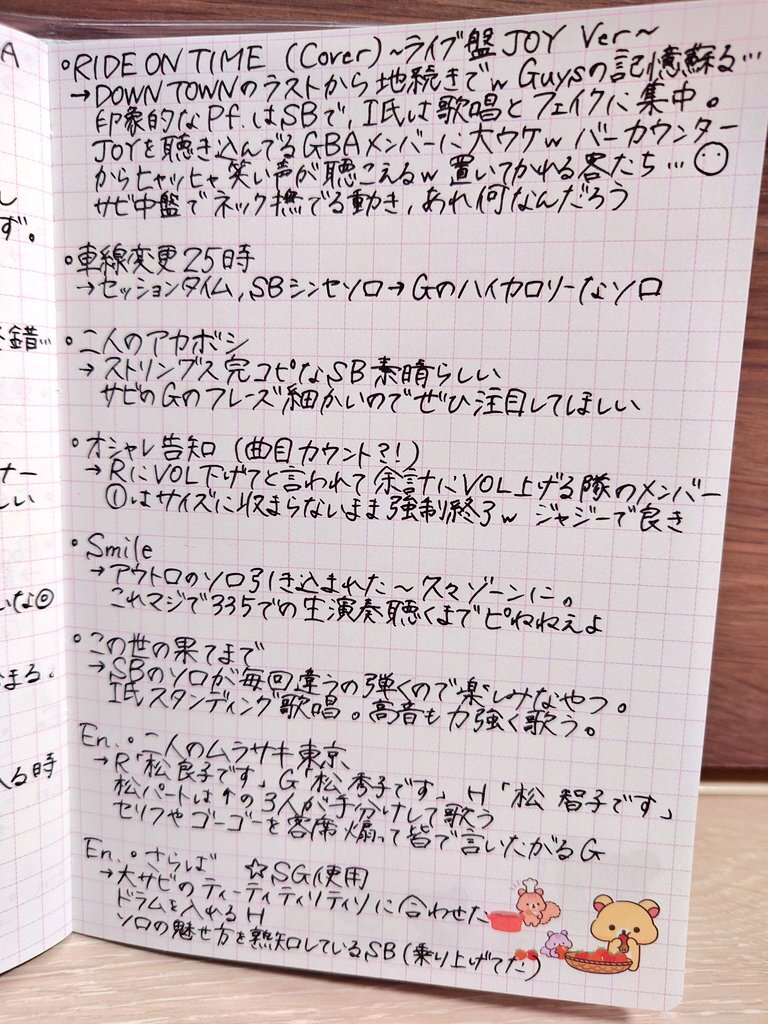 A
し
ず。
錯…
ナー
しい
いな◎
まる。
入る時
○RIDE ON TIME (Cover) ~ライブ盤 JOY Ver~
→DOWN TOWNのラストから地続きでw Guysの記憶蘇る…
印象的なPf.はSBで,I氏は歌唱とフェイクに集中。
JOYを聴き込んでるGBAメンバーに大ウケw バーカウンター
からヒャッヒャ笑い声が聴こえるw 置いてかれる客たち…
サビ中盤でネック撫でる動き,あれ何なんだろう
○車線変更25時
→セッションタイム,SBシンセソロ→Gのハイカロリーなソロ
○二人のアカボシ
→ストリングス完コピなSB素晴らしい
サビのGのフレーズ細かいのでぜひ注目してほしい
○オシャレ告知(曲目カウント?!)
→RにVOL下げてと言われて余計にVOL上げる隊のメンバー
①はサイズに収まらないまま強制終了w ジャジーで良き
・Smile
→アウトロのソロ引き込まれた~久々ゾーンに。
これマジで335での生演奏聴くまでピねねえよ
○この世の果てまで
→SBのソロが毎回違うの弾くので楽しみなやつ。
I氏スタンディング歌唱。高音も力強く歌う。
En.○二人のムラサキ東京
→R「松 良子です」G「松 秀子です」H「松 智子です」
松パートは↑の3人が手分けして歌う
セリフやゴーゴーを客席煽って皆で言いたがるG
En.○さらば ☆SG使用
→大サビのティーティティリティリに合わせた
ドラムを入れるH
ソロの魅せ方を熟知しているSB(乗り上げてた)